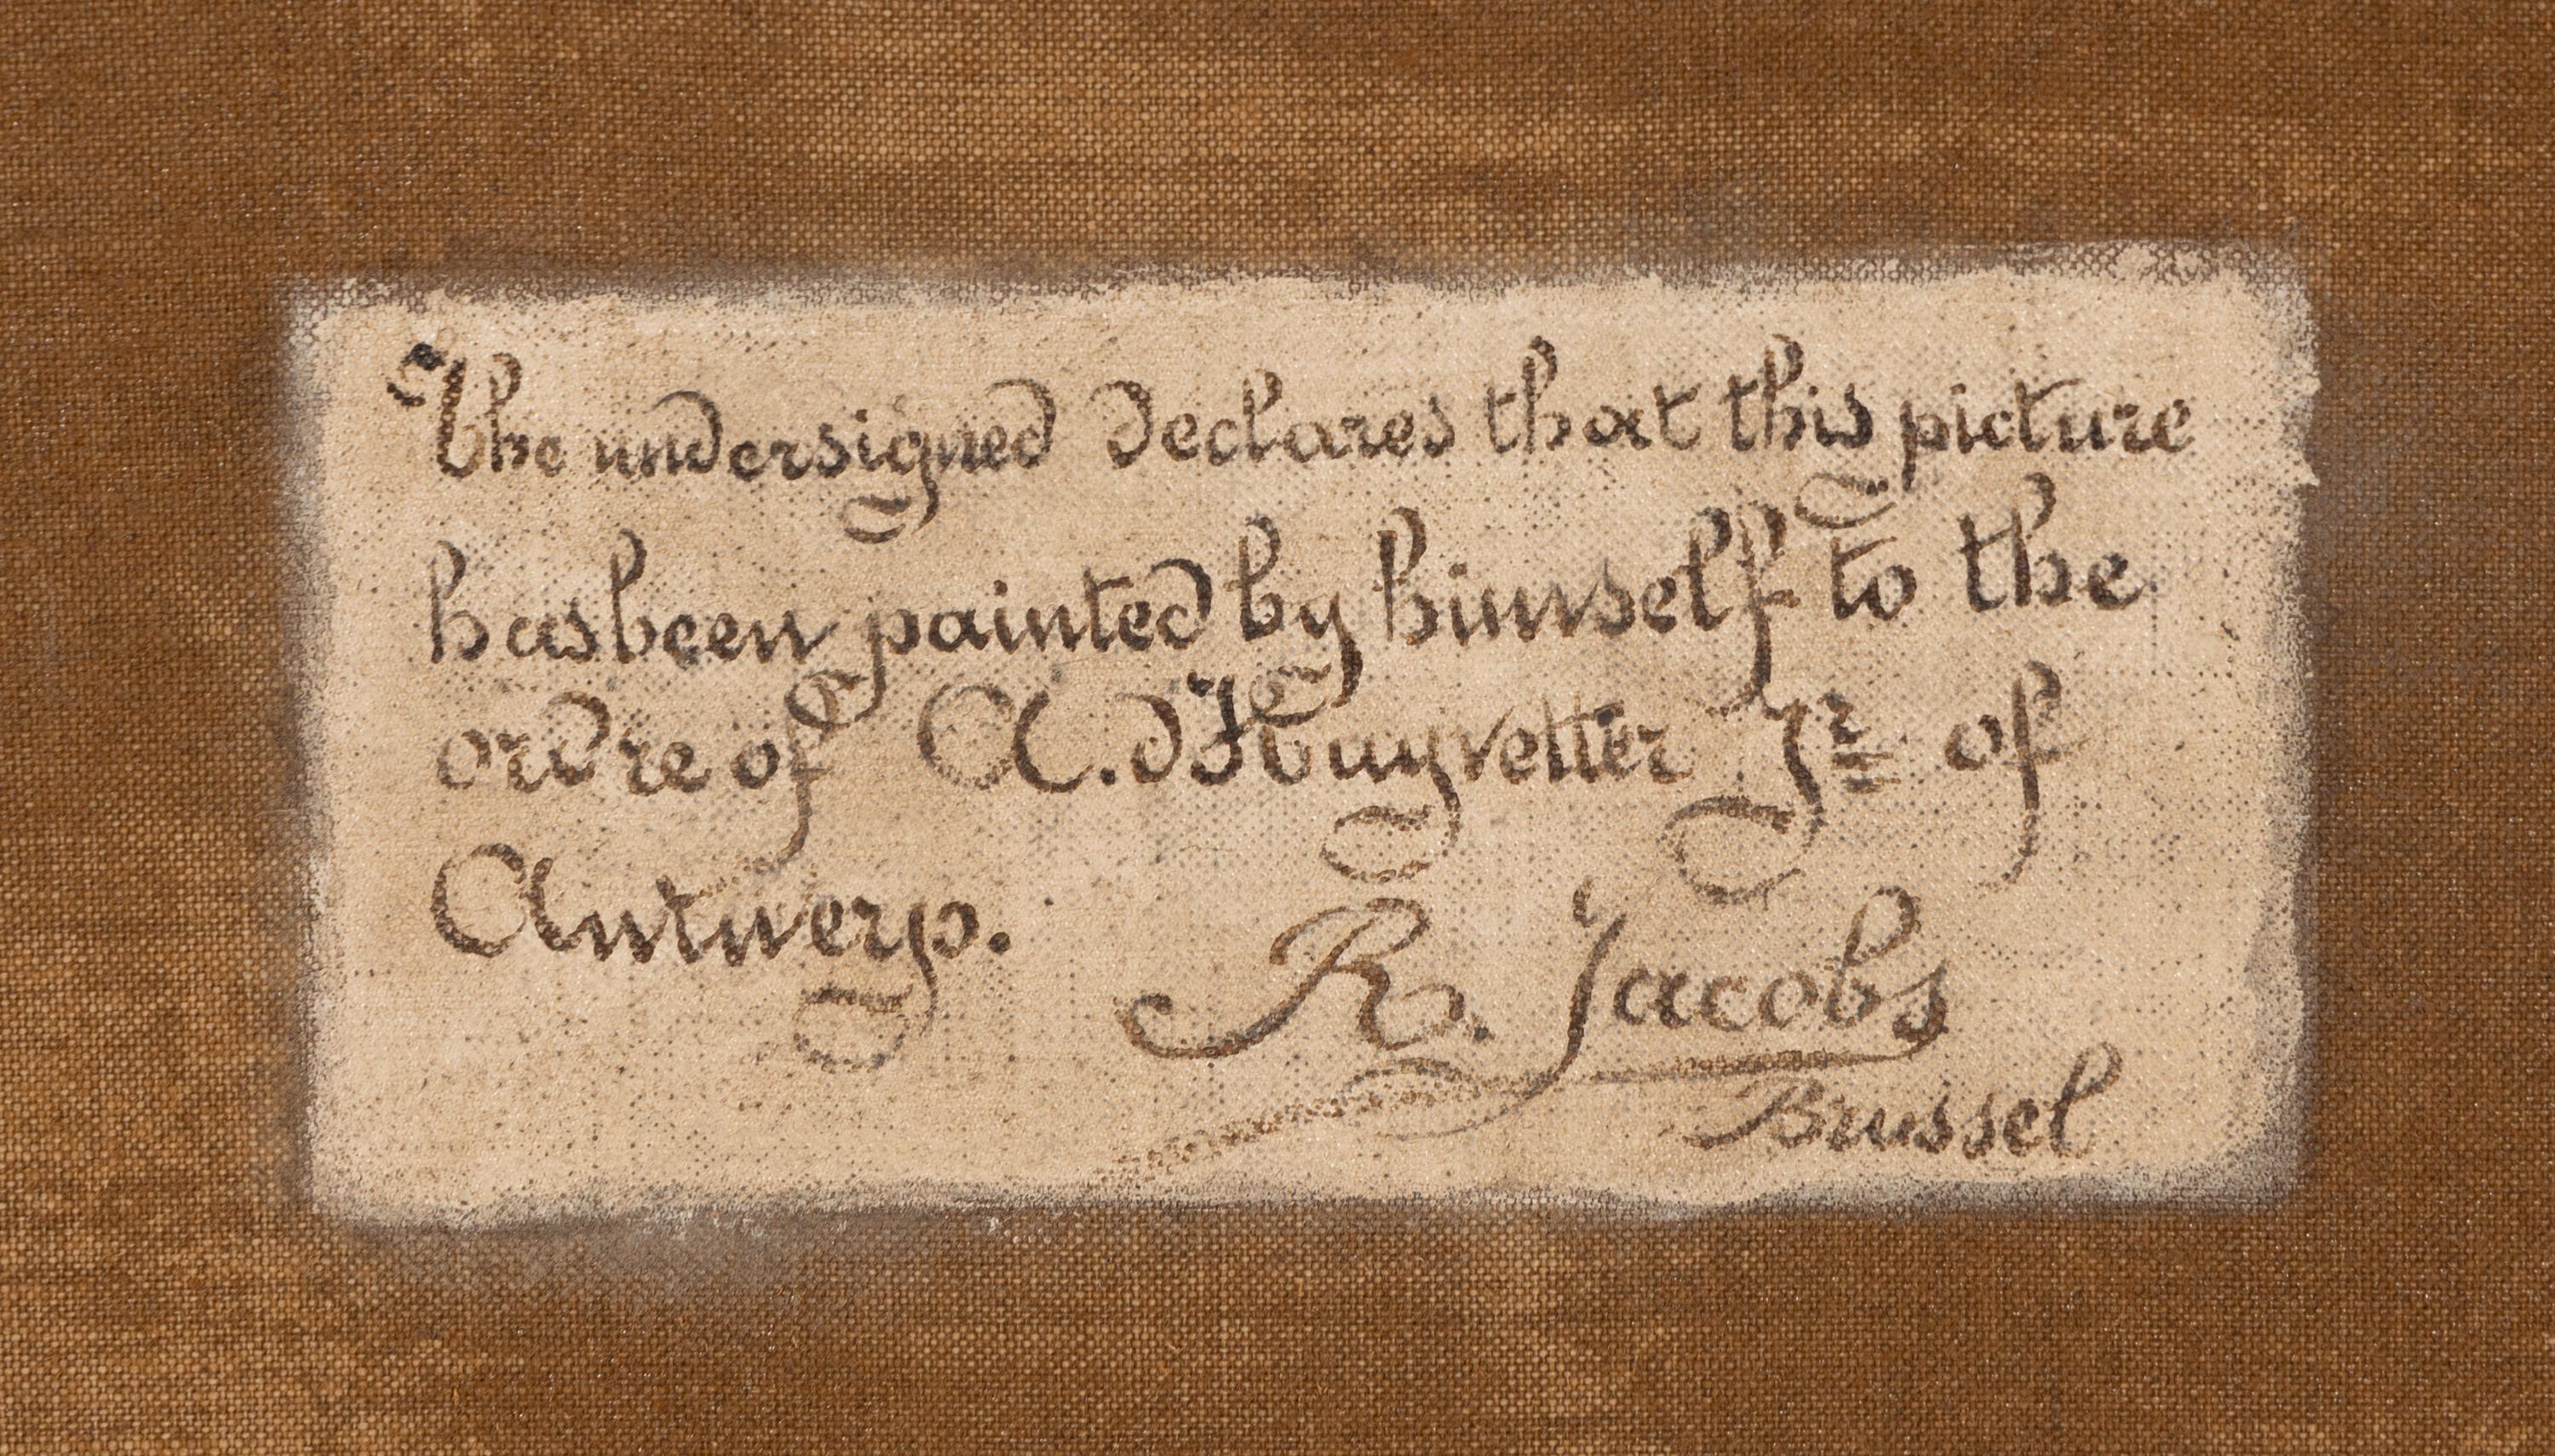 The undersigned declares that this picture
has been painted by himself to the
ordre of A. dHuyvetter Jr of
Antwerp.
R. Jacobs
Brussel